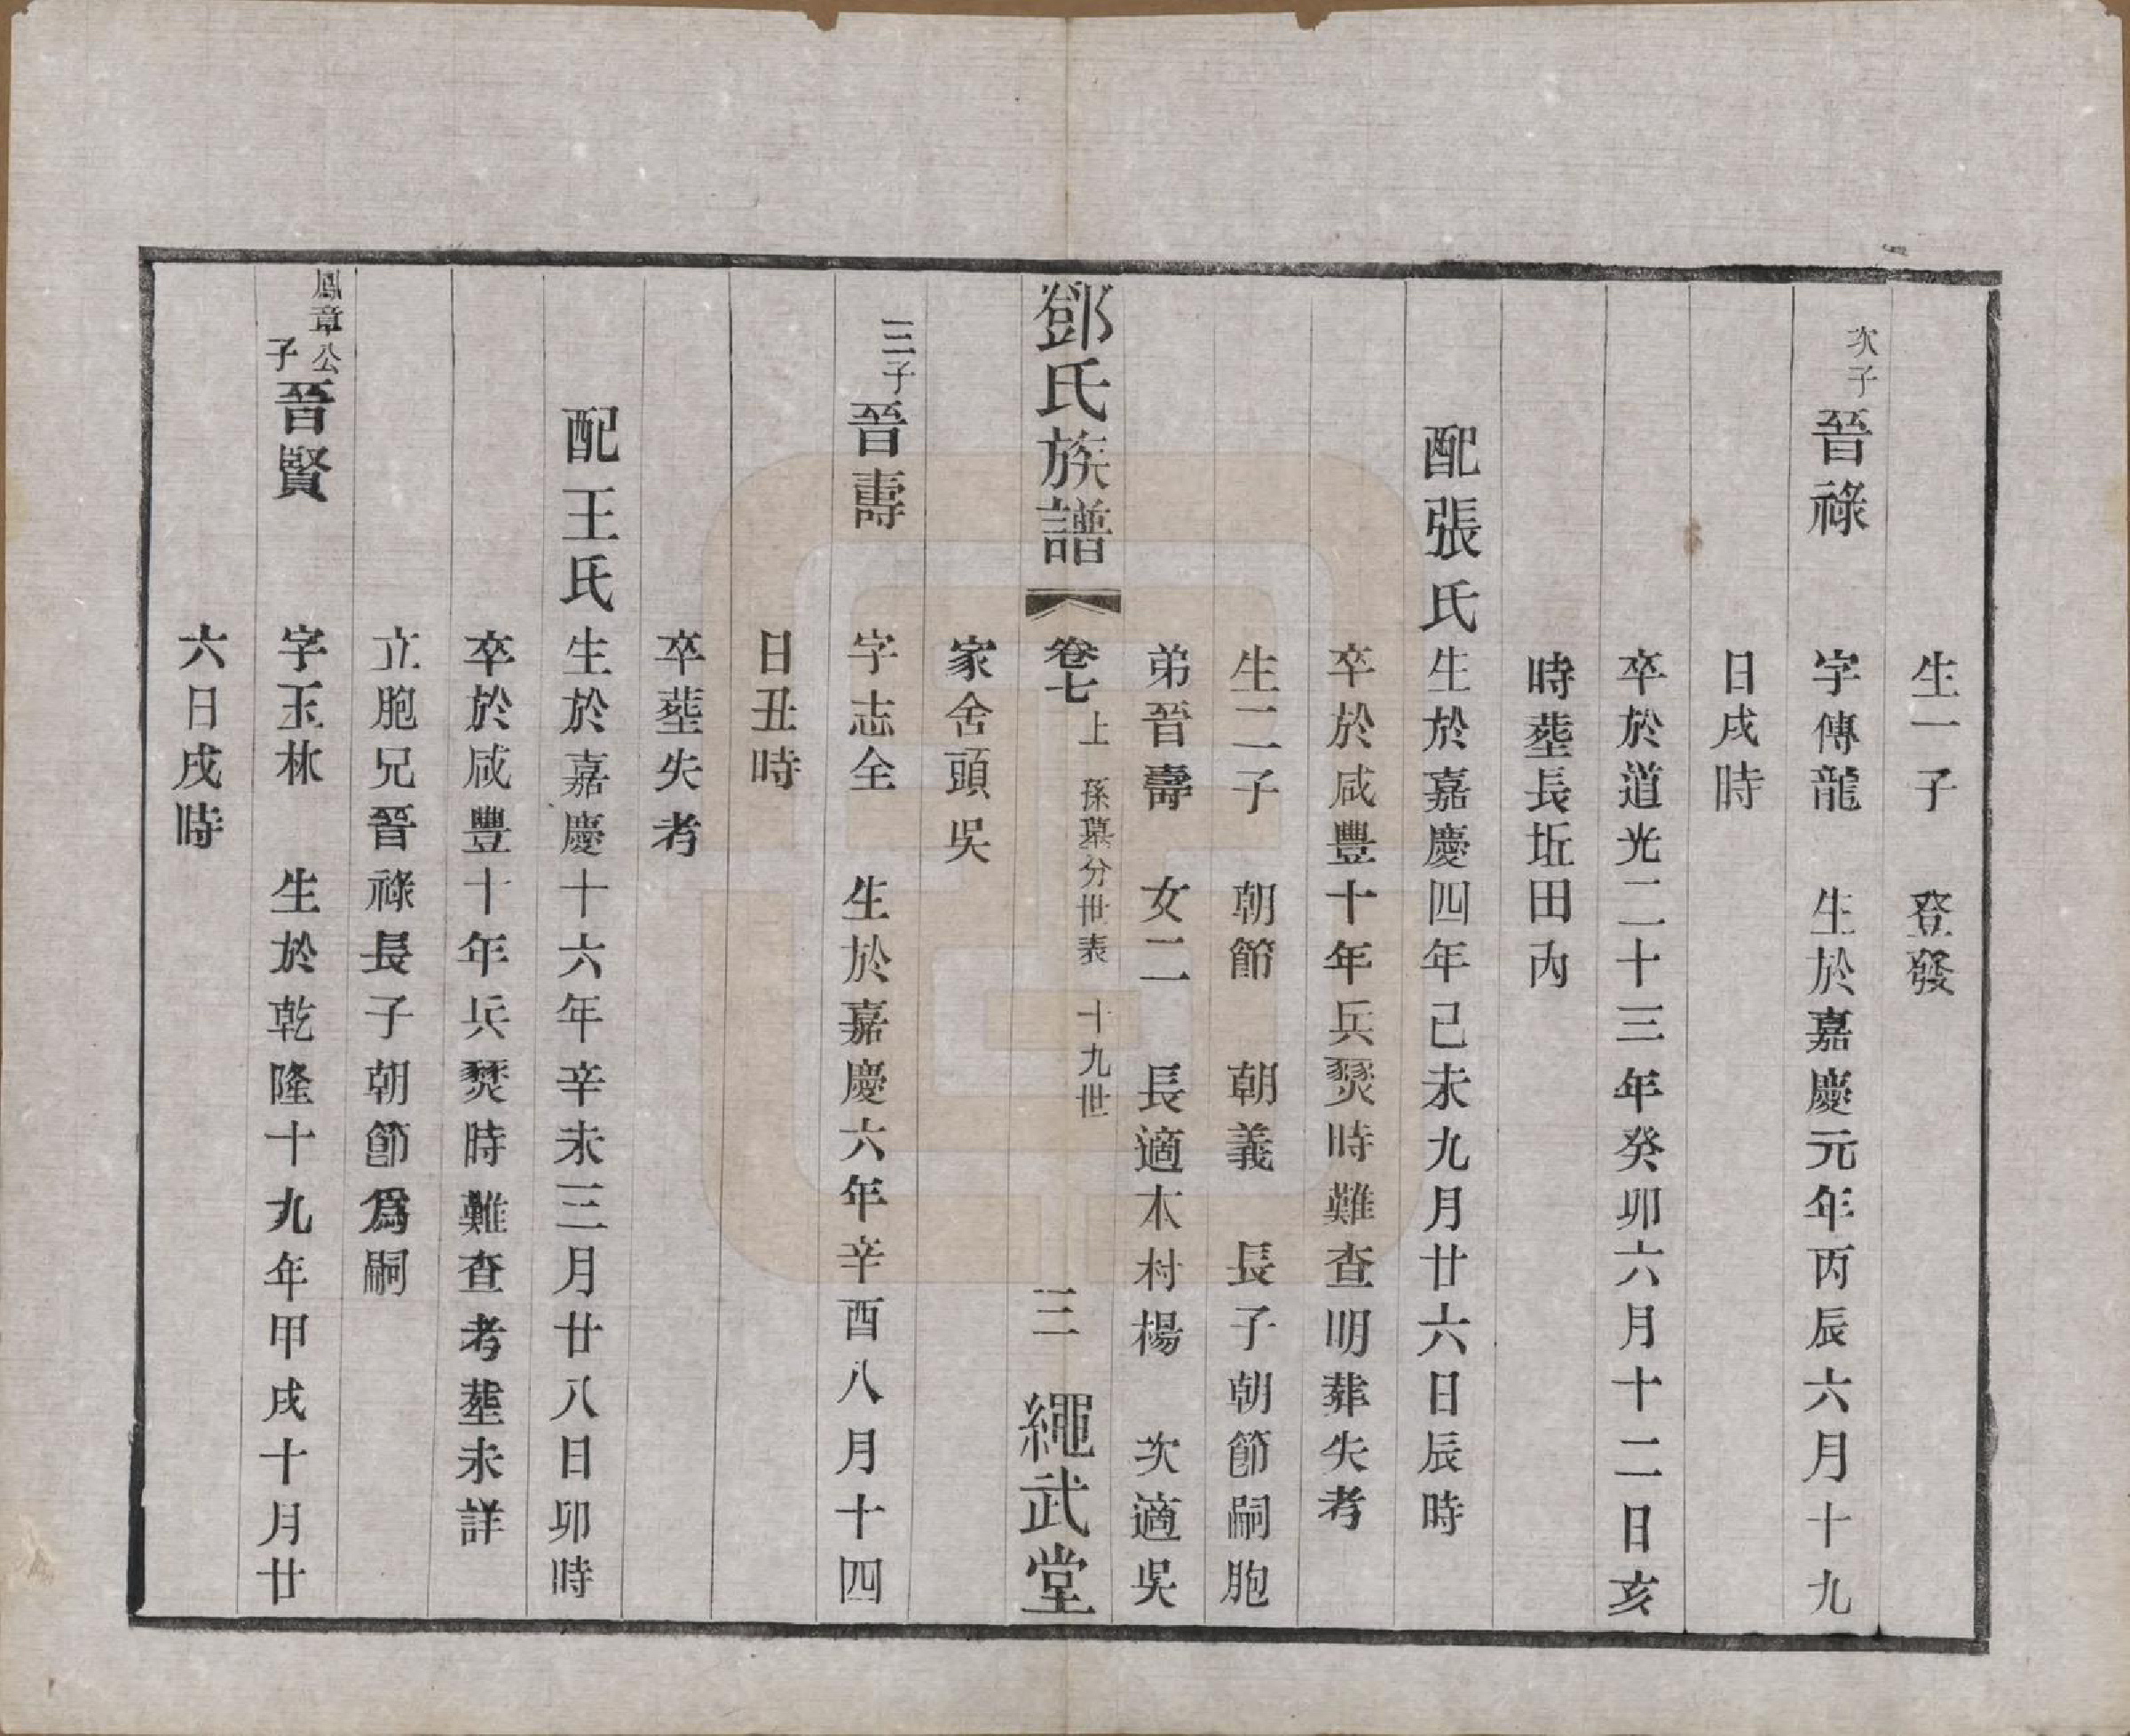 生一子　登發
次子晉祿　字傳龍　生於嘉慶元年丙辰六月十九
日戌時
卒於道光二十三年癸卯六月十二日亥
時塟長坵田內
配張氏生於嘉慶四年己未九月廿六日辰時
卒於咸豐十年兵燹時難查明葬失考
生二子　朝節　朝義　長子朝節嗣胞
弟晉壽　女二　長適木村楊　次適吳
家舍頭吳
鄧氏族譜　卷七上　孫墓分世表　十九世　三　繩武堂
三子晉壽　字志全　生於嘉慶六年辛酉八月十四
日丑時
卒塟失考
配王氏生於嘉慶十六年辛未三月廿八日卯時
卒於咸豐十年兵燹時難查考塟未詳
立胞兄晉祿長子朝節爲嗣
鳳章公子晉賢　字玉林　生於乾隆十九年甲戌十月廿
六日戌時